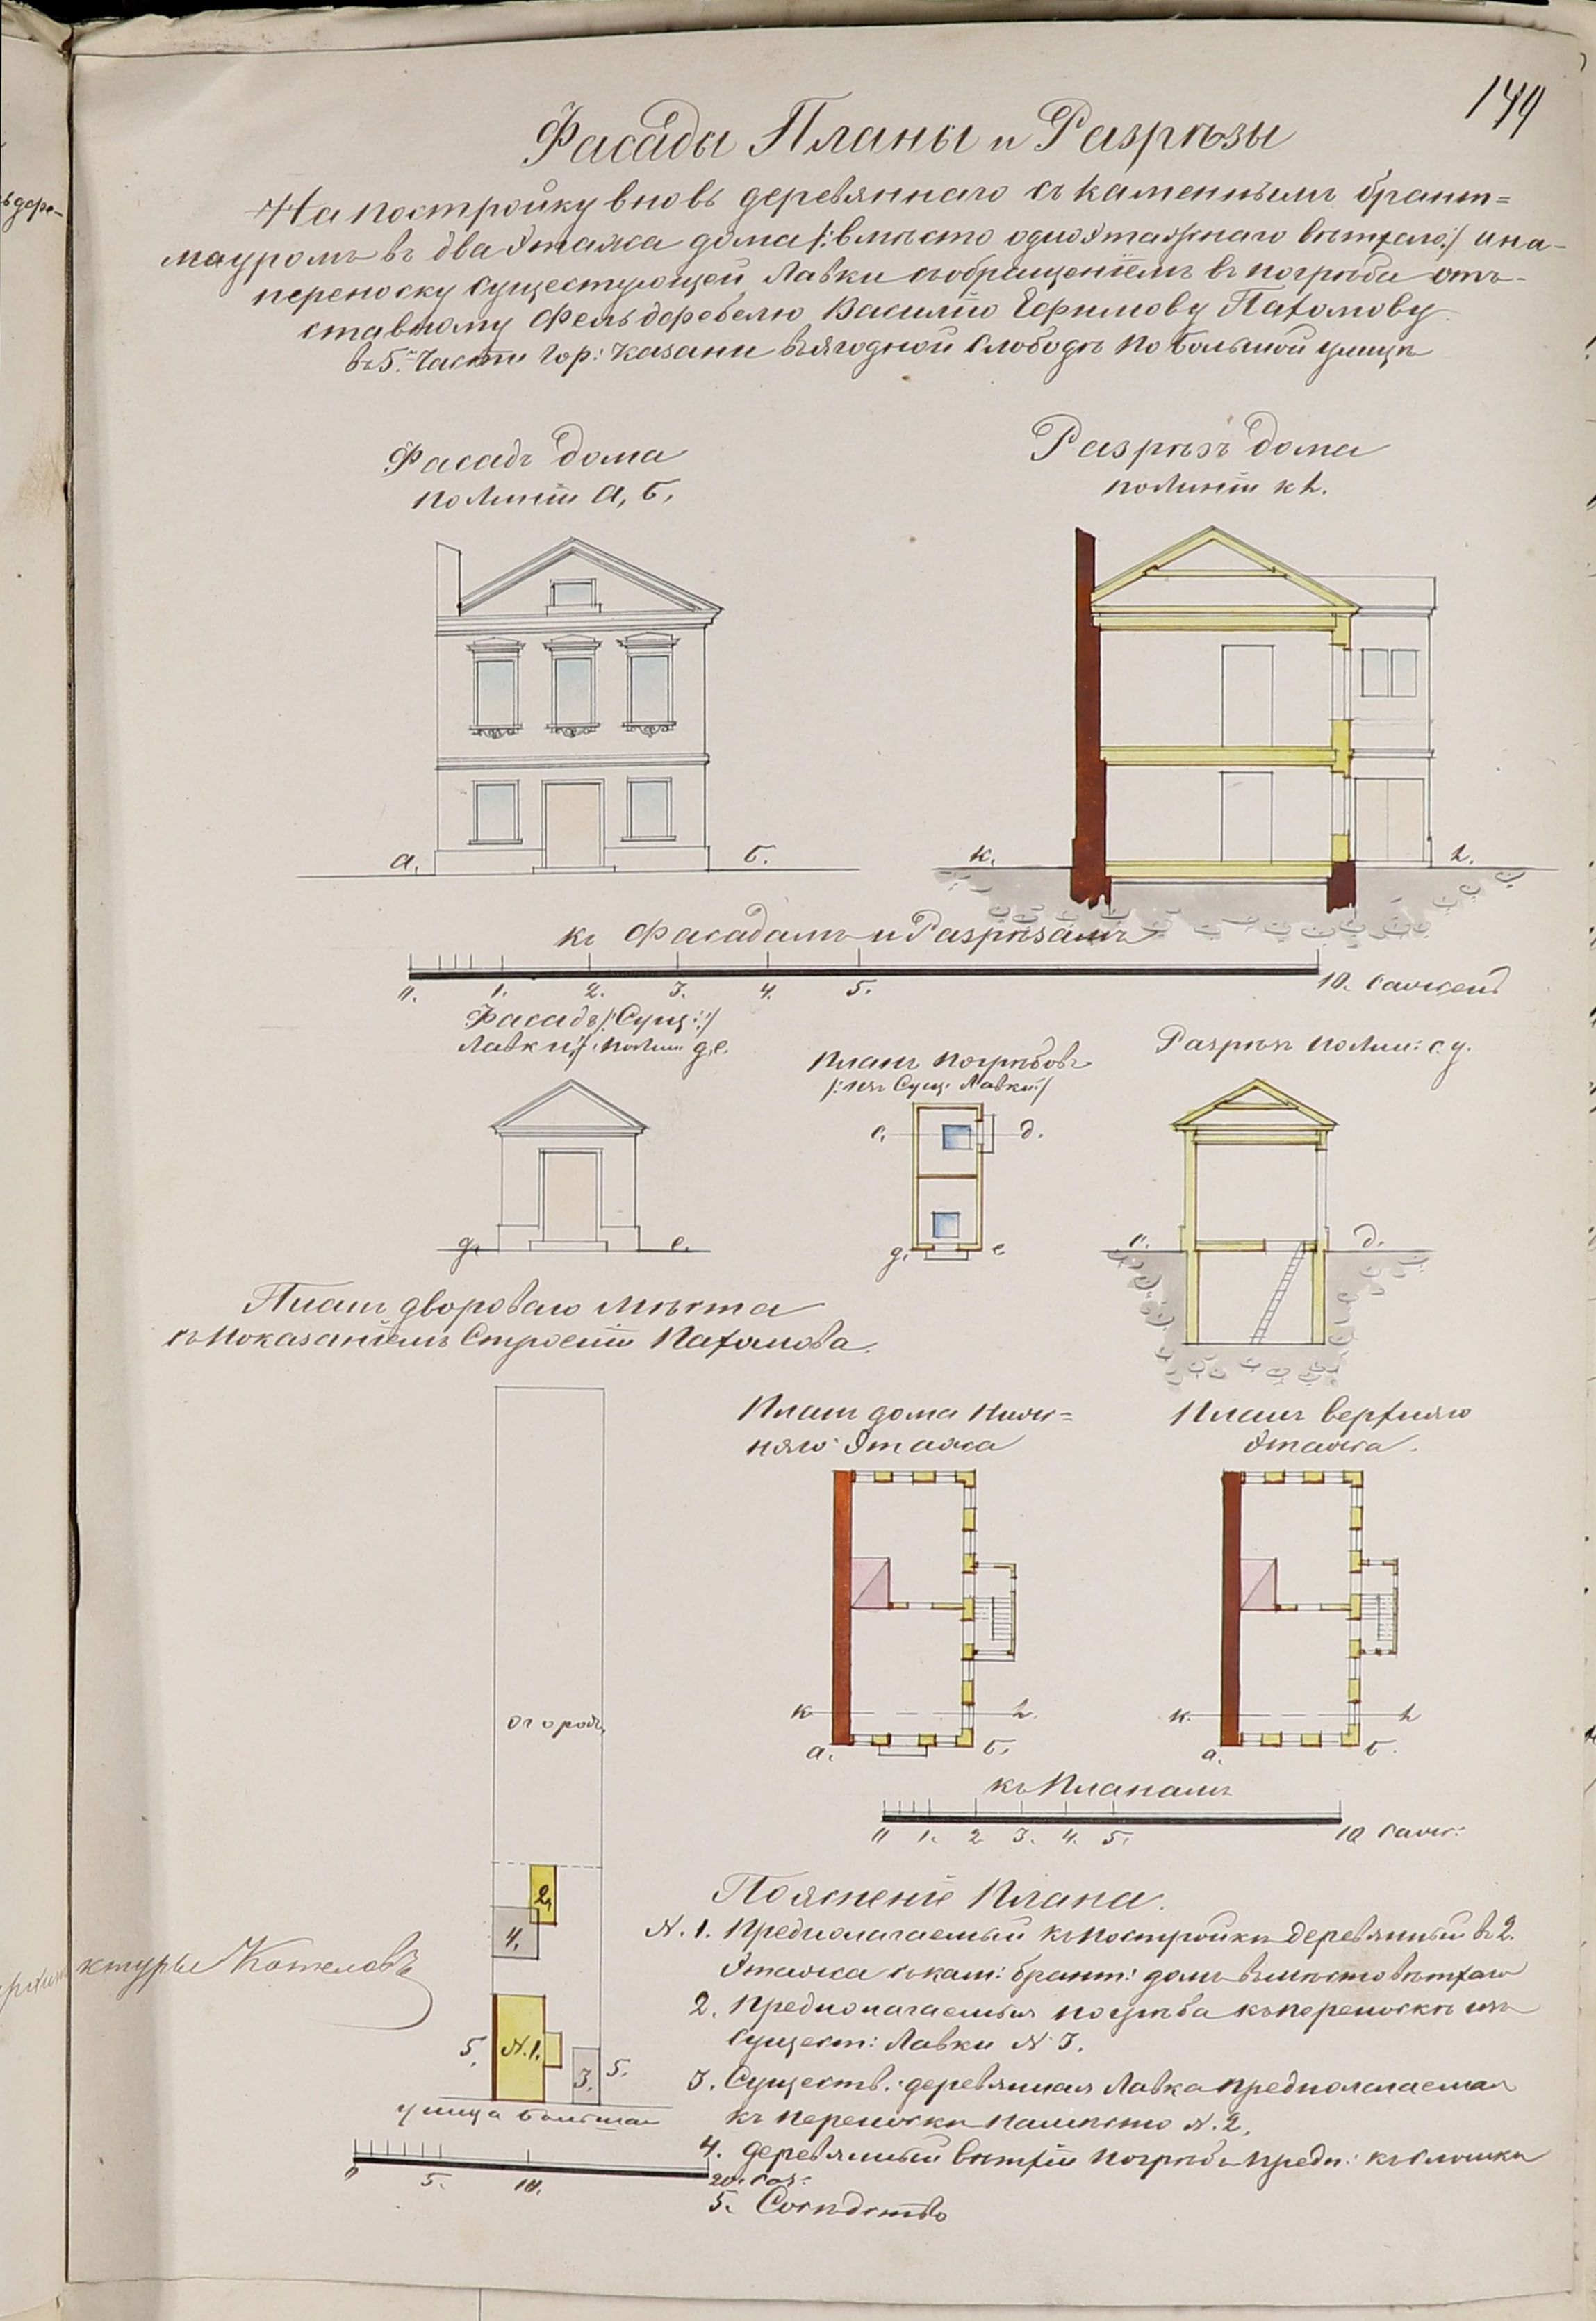 149
Фасады Планы и Разрѣзы
На постройку вновь деревяннаго съ каменнымъ брант=
мауромъ въ два этажа дома /:вмѣсто одноэтажнаго вѣтхаго:/ и на
переноску существующей лавки съ обращенiемъ въ погрѣба от-
ставному Фельдфебелю Василiю Ефимову Пахомову
въ 5.й Части гор: Казани въ Ягодной слободѣ по Большой улицѣ
Фасадъ дома
по линiи а, б,
Разрѣзъ дома
по линiи к h.
а.
б.
к.
h.
къ Фасадамъ и Разрѣзамъ
0. 1. 2. 3. 4. 5. 10. саженъ
Фасадъ /:Сущ:/
Лавки /: по лин д, е.
Планъ погрѣбовъ
/:изъ Сущ: Лавки:/
Разрѣзъ по лин: с. д.
с.
д.
д.
е.
д.
е
с.
д.
Планъ двороваго мѣста
съ показанiемъ Строенiи Пахомова.
Планъ дома Ниж=
няго этажа
Планъ верхняго
этажа.
огородъ
к
h.
а.
б.
к.
h
а.
б.
къ Планамъ
0 1. 2 3. 4. 5. 10 саж:
2,
4.
5.
N. 1.
3.
5.
улица большая
0 5. 10. 20. саж:
ктуры Котеловъ
Поясненiе Плана.
N. 1. Предполагаемый къ постройки деревянный въ 2.
этажа съ кам: брант: домъ въ мѣсто вѣтхаго
2. Предполагаемыя погрѣба къ переноскѣ изъ
сущест: Лавки N 3.
3. Существ: деревянная Лавка предполагаемая
къ переноски на мѣсто N. 2.
4. деревянный вѣтхiй погрѣбъ предп: къ сломки
5. Сосѣдство